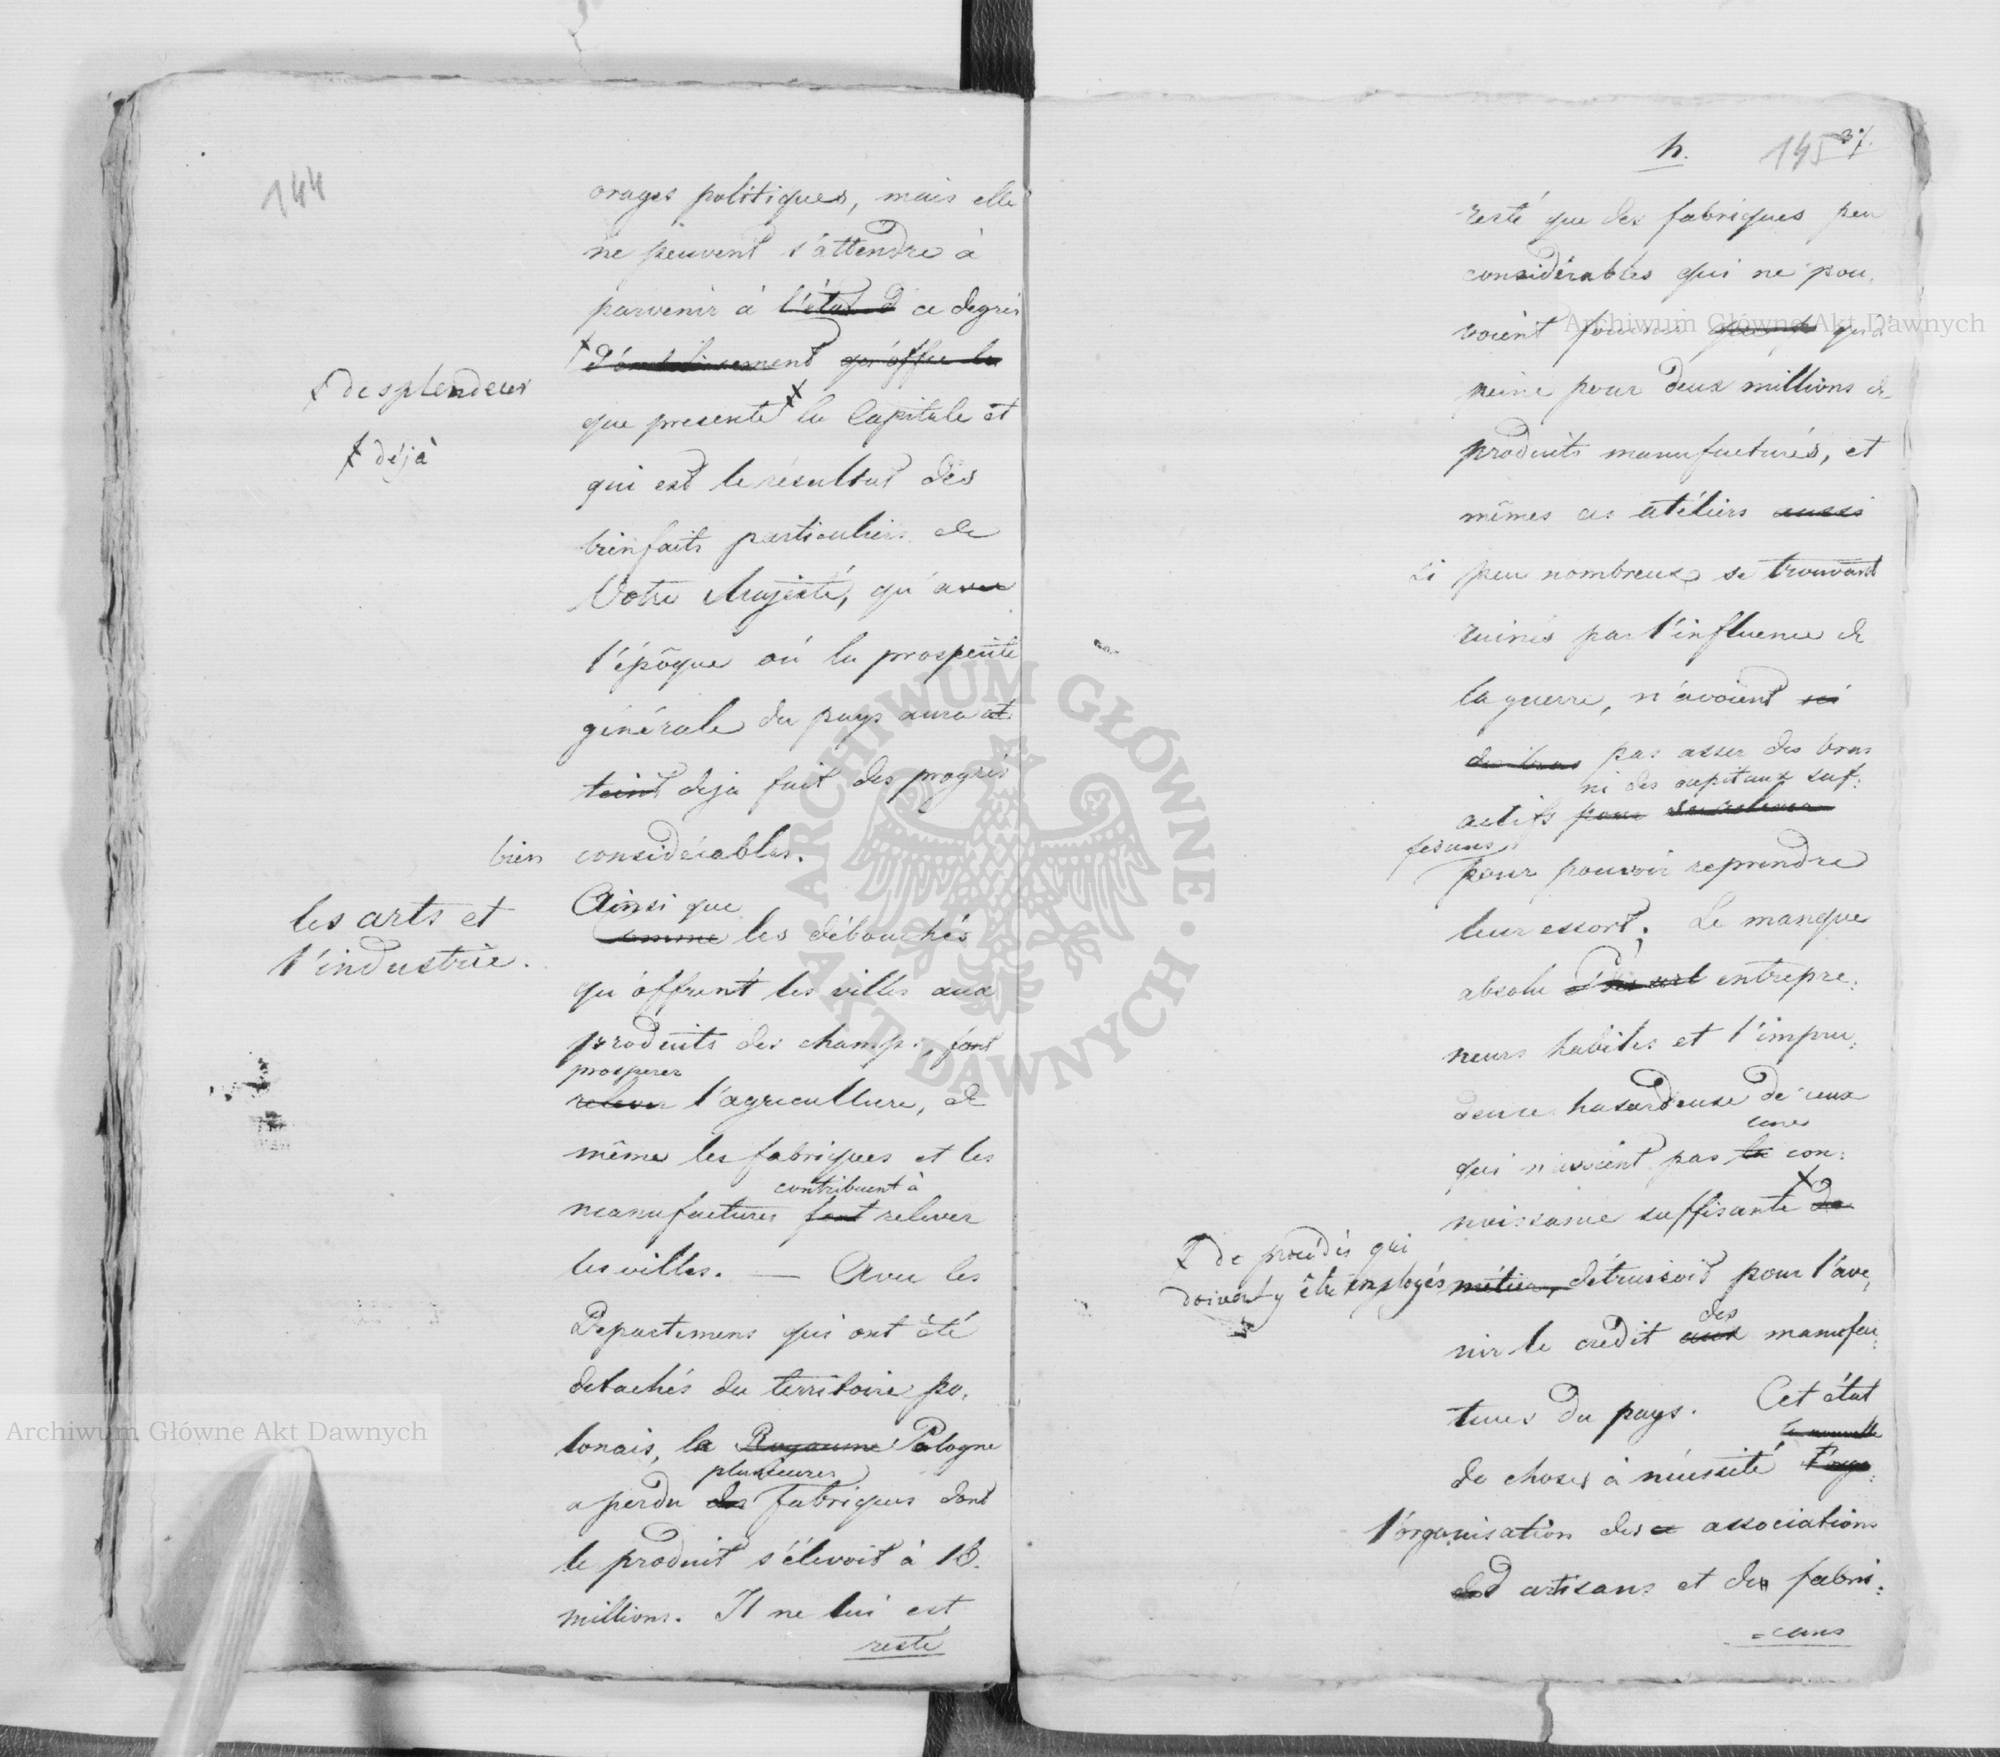 144
orages politiques, mais elle
ne peuvent s'attendre à
parvenir à l'état d ce degrés
d'embellissement qu'offre la
de splendeur
que presente la Capitale et
déjà
qui est le résultat des
bienfaits particuliers de
Votre Majesté, qu'avec
l'épôque où la prosperité
générale du pays aura at
teint deja fait des progrés
bien considérables.
les arts et
l'industrie.
Ainsi que
comme les débouchés
qu'offrent les villes aux
produits des champs, font
prosperer
relever l'agriculture, de
même les fabriques et les
contribuent à
manufactures font relever
les villes. — Avec les
Departemens qui ont été
detachés du territoire po,
lonais, la Royaume Pologne
plusieures
a perdu des fabriques dont
le produit s'élevoit à 18.
millions. Il ne lui est
resté
h. 145 37.
resté que des fabriques peu
considérables qui ne pou,
voient fournir qu'à
peine pour deux millions de
produits manufacturés, et
mêmes ces atéliers aussi
si peu nombreux se trouvant
ruinés par l'influence de
la guerre, n'avoient ni
des bras pas assez des bras
ni des capitaux suf:
actifs pour
fisans
pour pouvoir reprendre
leur essort. Le manque
absolu entrepre:
neurs habiles et l'impru:
dence hasardeuse de ceux
une
qui n'avoient pas la con:
noissance suffisante de
de procédés qui
doivent y être employés
métier, détruisoit pour l'ave,
des
nir le crédit aux manufac:
tures du pays. Cet état
la nouvelle
de choses à nécessité l'orga:
l'organisation des associations
d artisans et des fabri:
=cans
Archiwum Główne Akt Dawnych
Archiwum Główne Akt Dawnych
ARCHIWUM GŁÓWNE · AKT DAWNYCH ·